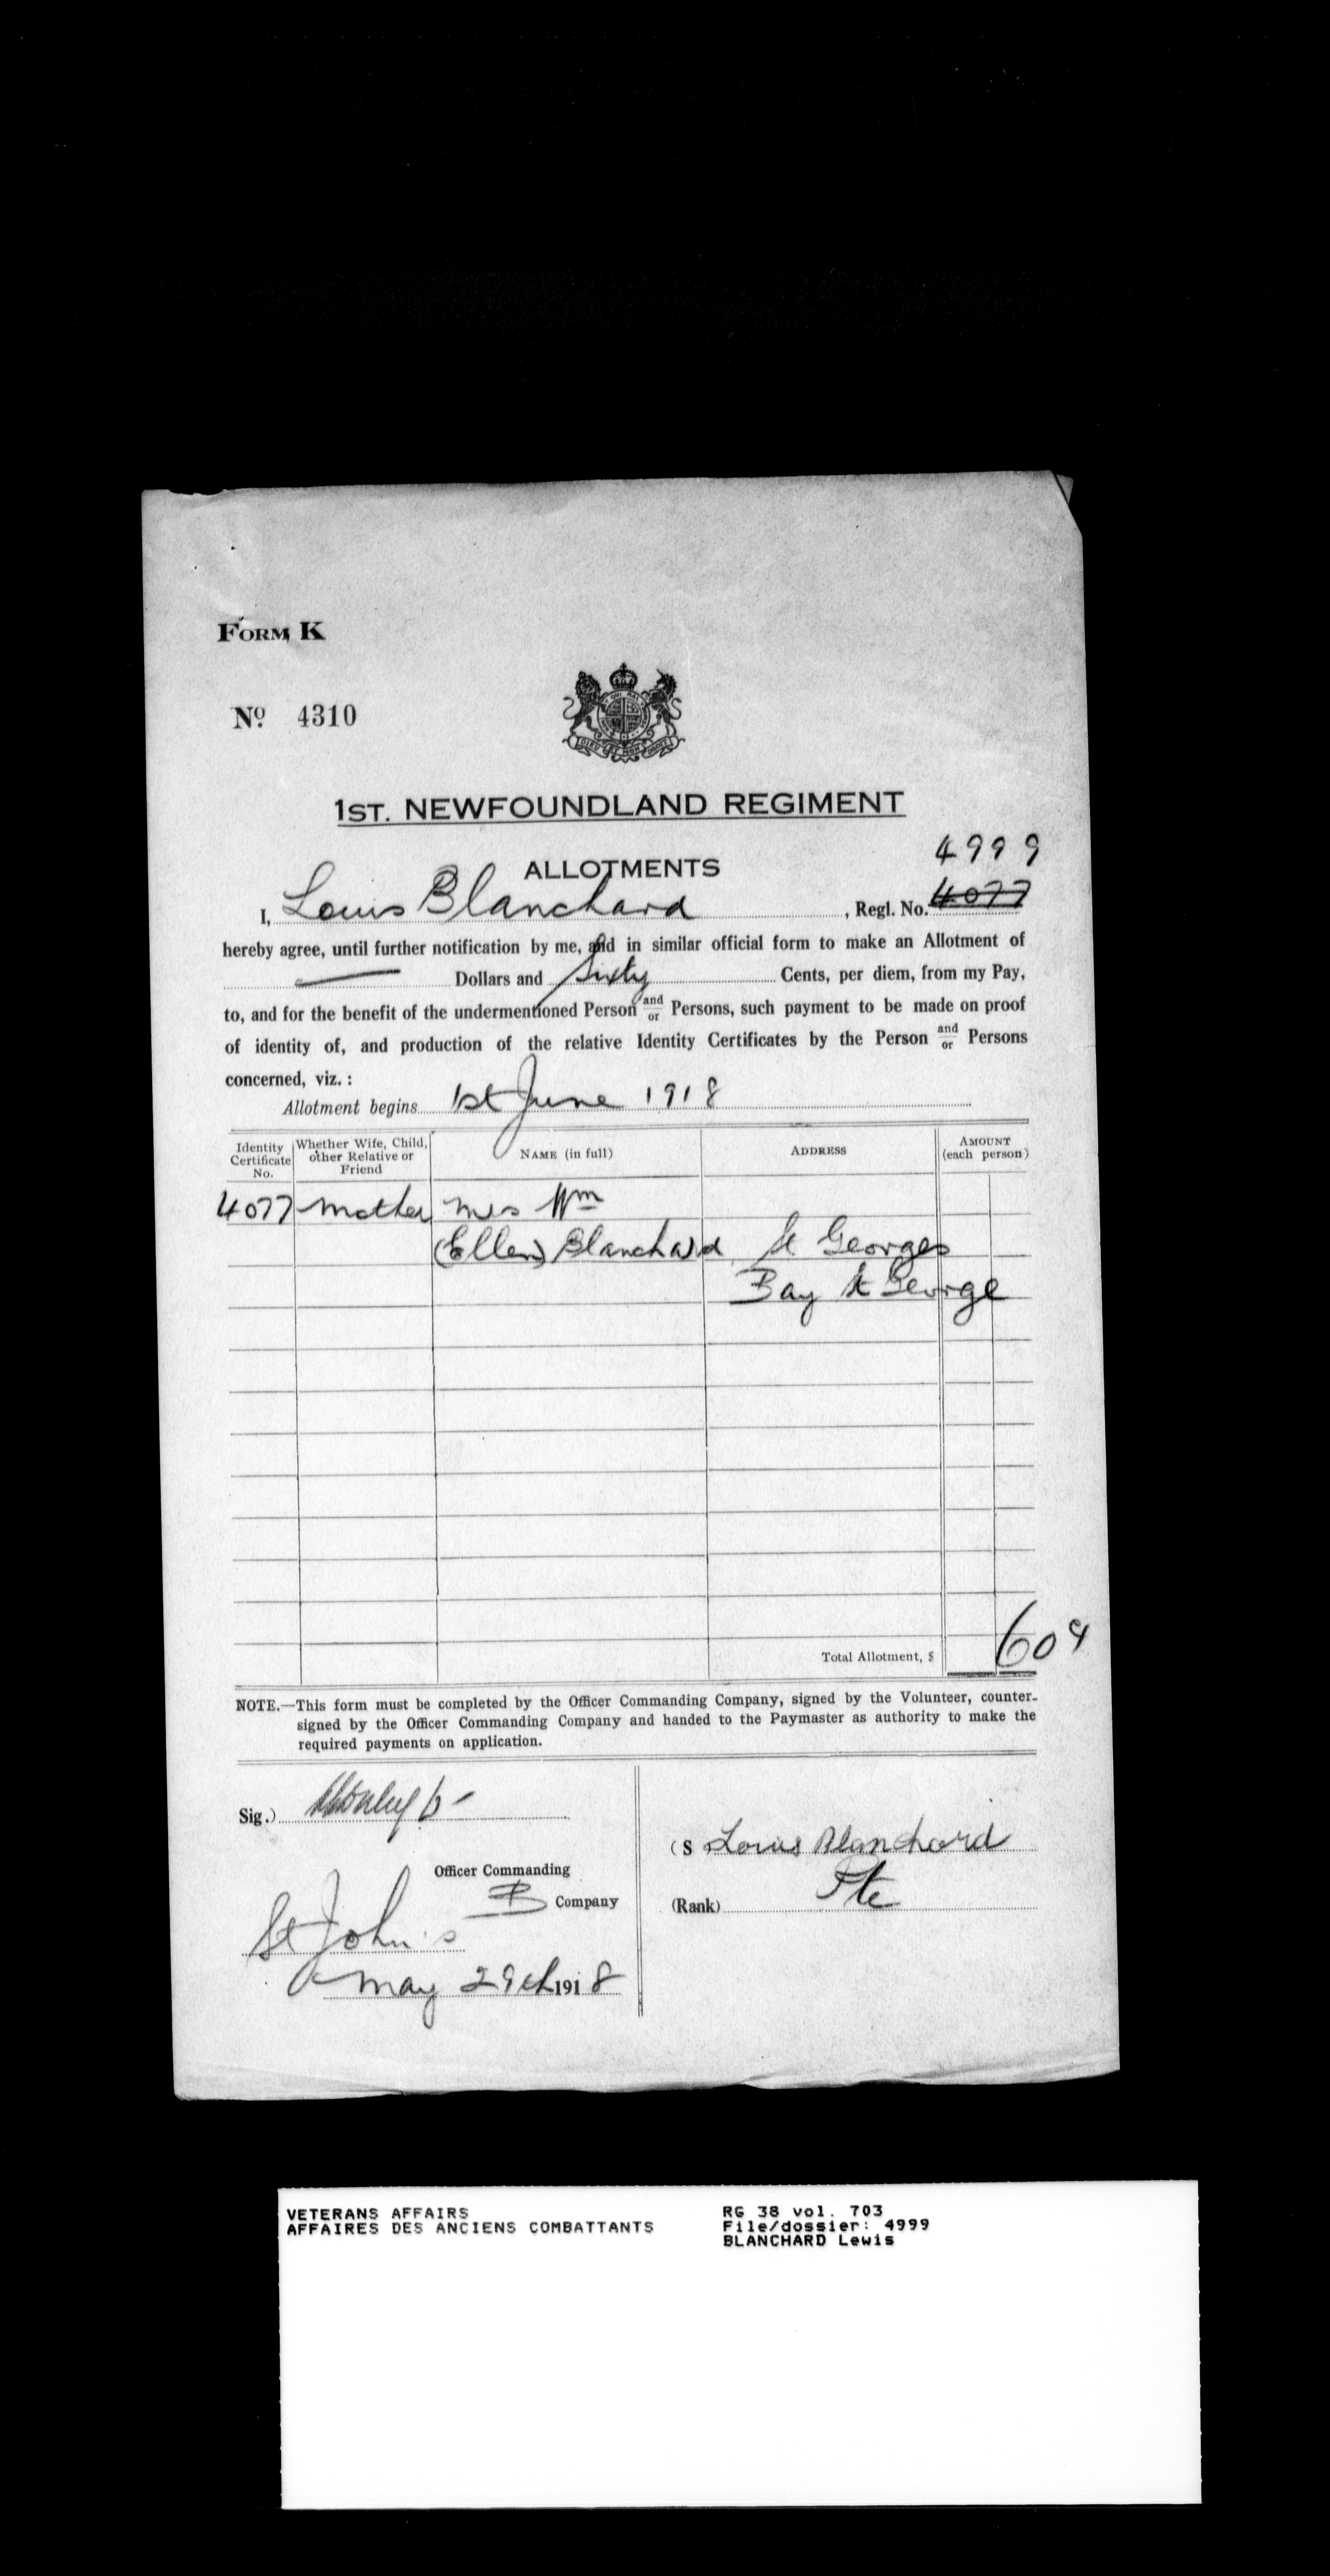 FORM K
No. 4310
DIEU ET MON DROIT
1ST. NEWFOUNDLAND REGIMENT
4999
ALLOTMENTS
I, Louis Blanchard, Regl. No. 4077
hereby agree, until further notification by me, and in similar official form to make an Allotment of
— Dollars and Sixty Cents, per diem, from my Pay,
to, and for the benefit of the undermentioned Person and or Persons, such payment to be made on proof
of identity of, and production of the relative Identity Certificates by the Person and or Persons
concerned, viz.:
Allotment begins 1st June 1918
Identity Certificate No. Whether Wife, Child, other Relative or Friend NAME (in full) ADDRESS AMOUNT (each person)
4077 Mother Mrs Wm
(Ellen) Blanchard St Georges
Bay St George
Total Allotment, $ 60¢
NOTE.—This form must be completed by the Officer Commanding Company, signed by the Volunteer, counter-
signed by the Officer Commanding Company and handed to the Paymaster as authority to make the
required payments on application.
Sig.)
Officer Commanding
B Company
St John's
May 29th 1918
(S Louis Blanchard
(Rank) Pte
VETERANS AFFAIRS
AFFAIRES DES ANCIENS COMBATTANTS
RG 38 vol. 703
File/dossier: 4999
BLANCHARD Lewis